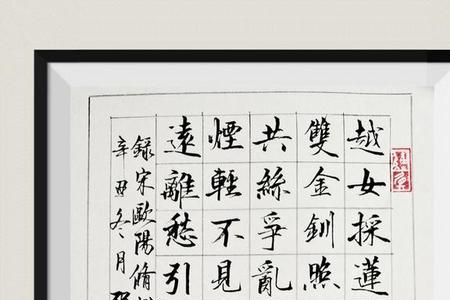 越女採蓮
雙金釧照
共絲爭亂
煙輕不見
遠離愁引
錄宋歐陽脩
辛丑冬月